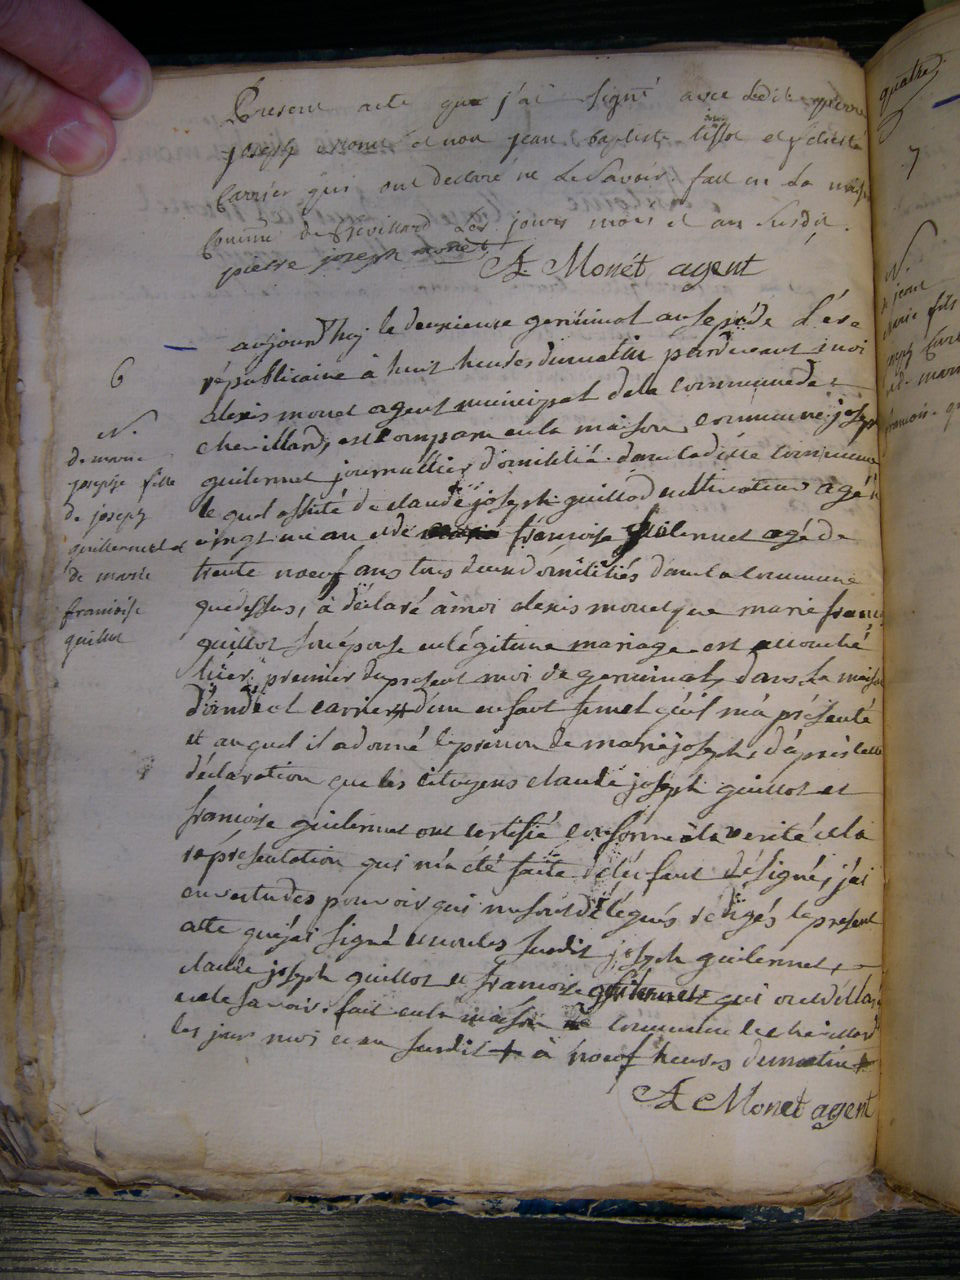 present acte que j'ai signé avec ledit pierre
joseph monet et non jean baptiste
carrier qui ont declaré ne le savoir fait en la maison
commune de chevillard les jours mois et an susdit.
pierre joseph monet
A. Monét agent
6
N.
de marie
josephe fille
de joseph
guillermet et
de marie
francoise
guillot
aujourd'huj le deuxieuse gerûinal an sepède L'ére
républicaine à huit heures dumatin pardevant moi
alexis monet agent municipal dela commune de
chevillard, est comparu en la maison commune joseph
guilermet journallier domiilié dans ladite commune
le quel assité de claude joseph guillod cultivateur agé
vingt un an et de francoise guilermet agé de
trente noeuf ans tous deux domiliés dans la commune
que dessus, à déclaré à moi alexis monet que marie franc
guillot son épouse en légitime mariage est accouché
hiér premier du present moi de germinal, dans la maison
carrier d'un enfant femel qu'il m'a présenté
et auquel il a donné le prenon de marie joseph, d'après cette
déclaration que les citoyens claude joseph guillot et
francoise guilermet ont certifié conforme à la verité et la
représentation qui m'a été faite de l'enfant désigné, j'ai
en vertu des pouvoirs qui me sont délégués rédigés le present
atte que j'ai signé susdit joseph guilermet,
claude joseph guillot et francoise guilermet qui ont déclaré
ne le savoir. fait en la maison commune de chevillard
les jour moi et an susdit à noeuf heures dumatin
A. Monet agent
quatre
7
N.
de jean
marie fils